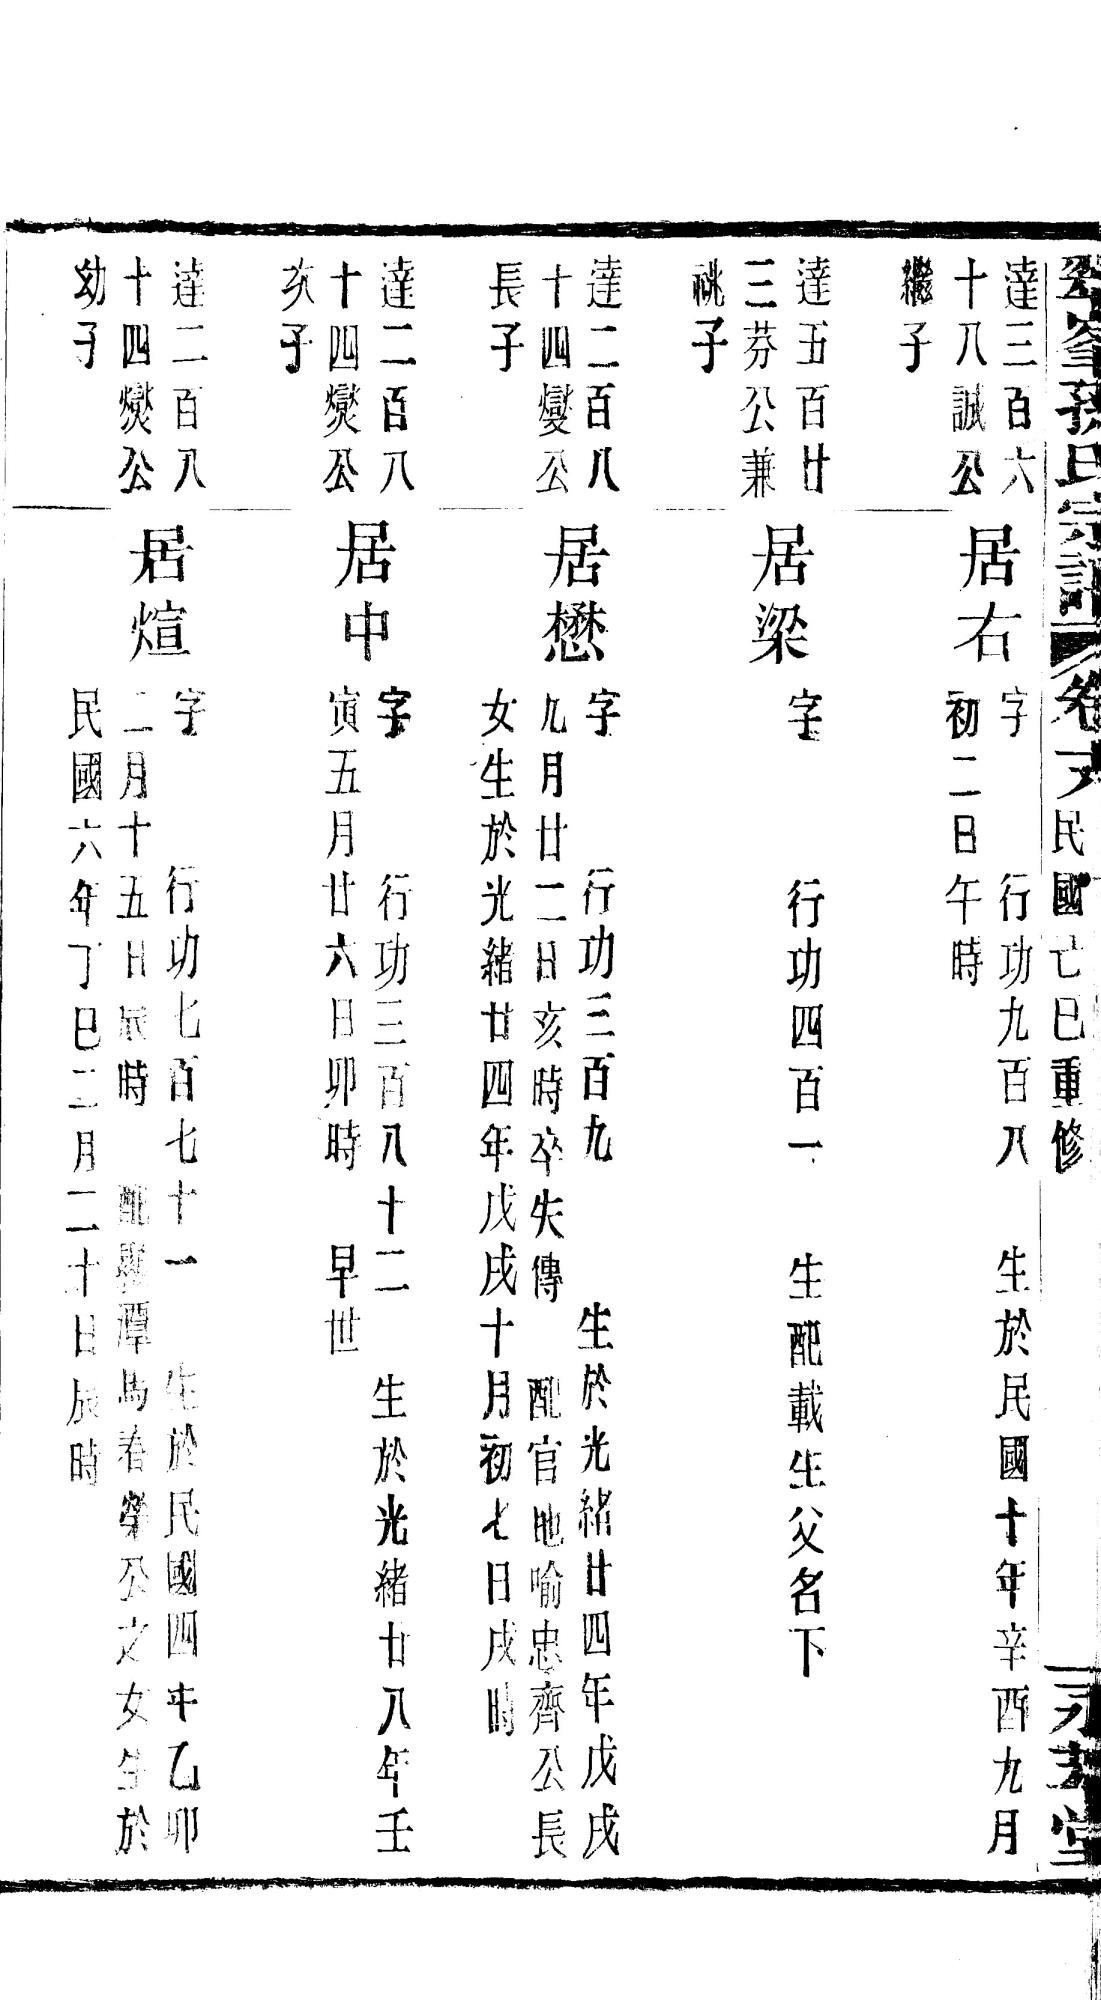 孫氏宗譜 卷 民國己巳重修
堂
達三百六
十八誠公
繼子
居右
字 行功九百八 生於民國十年辛酉九月
初二日午時
達五百廿
三芬公兼
祧子
居梁
字 行功四百一 生配載生父名下
達二百八
十四燮公
長子
居懋
字 行功三百九 生於光緒廿四年戊戌
九月廿二日亥時卒失傳 配官地喻忠齊公長
女生於光緒廿四年戊戌十月初七日戌時
達二百八
十四爕公
次子
居中
字 行功三百八十二 生於光緒廿八年壬
寅五月廿六日卯時 早世
達二百八
十四爕公
幼子
居煊
字 行功七百七十一 生於民國四年乙卯
二月十五日辰時 配潭馬春榮公之女生於
民國六年丁巳二月二十日辰時